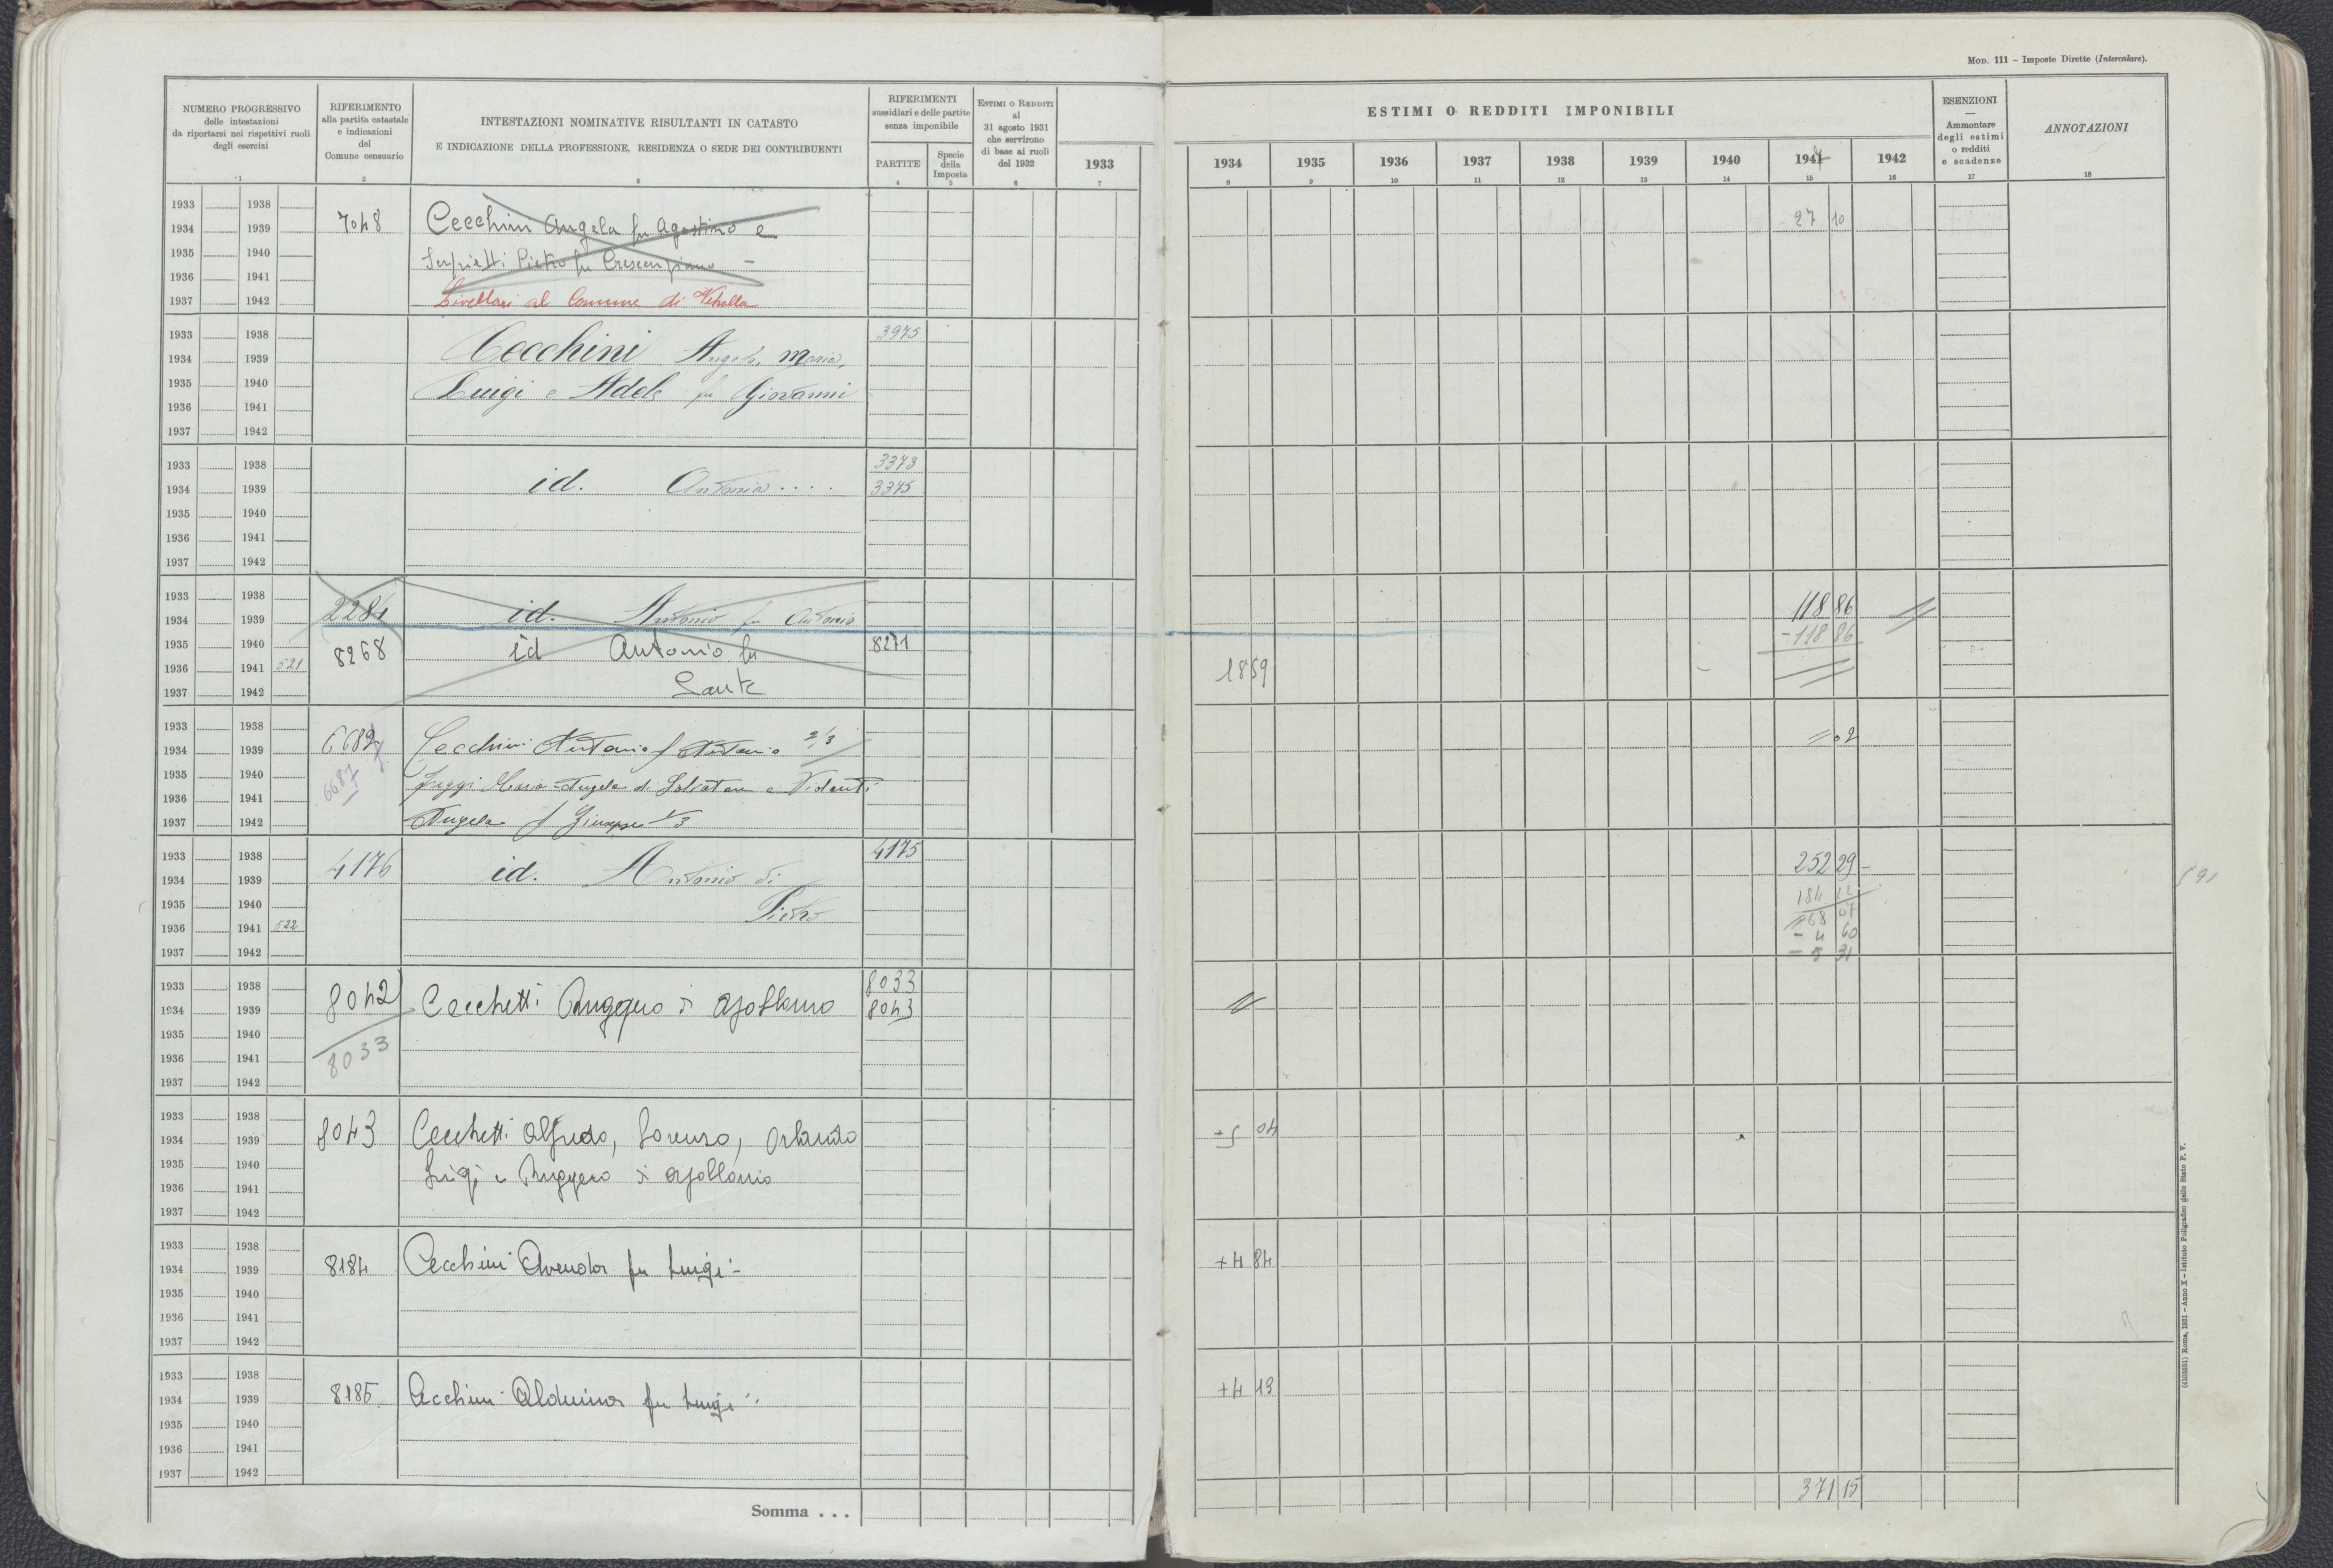 Mod. 111 – Imposte Dirette (Intercalare).
NUMERO PROGRESSIVO
delle intestazioni
da riportarsi nei rispettivi ruoli
degli esercizi
1
RIFERIMENTO
alla partita catastale
e indicazioni
del
Comune censuario
2
INTESTAZIONI NOMINATIVE RISULTANTI IN CATASTO
E INDICAZIONE DELLA PROFESSIONE, RESIDENZA O SEDE DEI CONTRIBUENTI
3
RIFERIMENTI
sussidiari e delle partite
senza imponibile
PARTITE
4
Specie
della
Imposta
5
Estimi o Redditi
al
31 agosto 1931
che servirono
di base ai ruoli
del 1932
6
1933
7
ESTIMI O REDDITI IMPONIBILI
1934 1935 1936 1937 1938 1939 1940 1941 1942
8 9 10 11 12 13 14 15 16
ESENZIONI
—
Ammontare
degli estimi
o redditi
e scadenze
17
ANNOTAZIONI
18
1933 1938
1934 1939 7048 Cecchini Angela fu Agostino e 27 10
1935 1940 Pietro fu Crescenziano –
1936 1941
1937 1942 Livellari al Comune di Vetralla
1933 1938 3975
1934 1939 Cecchini Angelo, Maria,
1935 1940 Luigi e Adele fu Giovanni
1936 1941
1937 1942
1933 1938 3373
1934 1939 id. Antonia . . . . 3375
1935 1940
1936 1941
1937 1942
1933 1938
1934 1939 2284 id. Antonio fu Antonio 118 86
1935 1940 8268 id Antonio fu 8271 -118 86
1936 1941 521 18 59
1937 1942 Sante
1933 1938
1934 1939 6682 Cecchini Antonio f Antonio 2/3 = 02
1935 1940 6687 Maria Angela di Salvatore e Violanti
1936 1941
1937 1942 Angela f Giuseppe 1/3
1933 1938 4175
1934 1939 4176 id. Antonio di 252 29 –
1935 1940 Pietro 184 22
68 07
1936 1941 522 - 4 60
1937 1942 - 5 31
591
1933 1938 8033
1934 1939 8042 Cecchetti Ruggero di Apollonio 8043
1935 1940
1936 1941 8033
1937 1942
1933 1938
1934 1939 8043 Cecchetti Alfredo, Lorenzo, Orlando +5 04
1935 1940 Luigi e Ruggero di Apollonio
1936 1941
1937 1942
1933 1938
1934 1939 8184 Cecchini fu Luigi - +4 84
1935 1940
1936 1941
1937 1942
1933 1938
1934 1939 8185 Cecchini Alduina fu Luigi +4 19
1935 1940
1936 1941
1937 1942
Somma . . . 371 15
(4105031) Roma, 1931 – Anno X – Istituto Poligrafico dello Stato P. V.